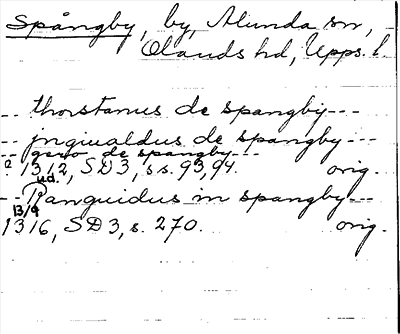 Spångby, by, Alunda sn,
Olands hd, Upps. l.
-- thorstanus de spangby ---
-- jngiualdus de spangby ---
-- gero de spangby ---
1312, SD3, s s. 93, 94. orig.
ud.
-- Ranguidus in spangby ---
13/9
1316, SD3, s. 270. orig.